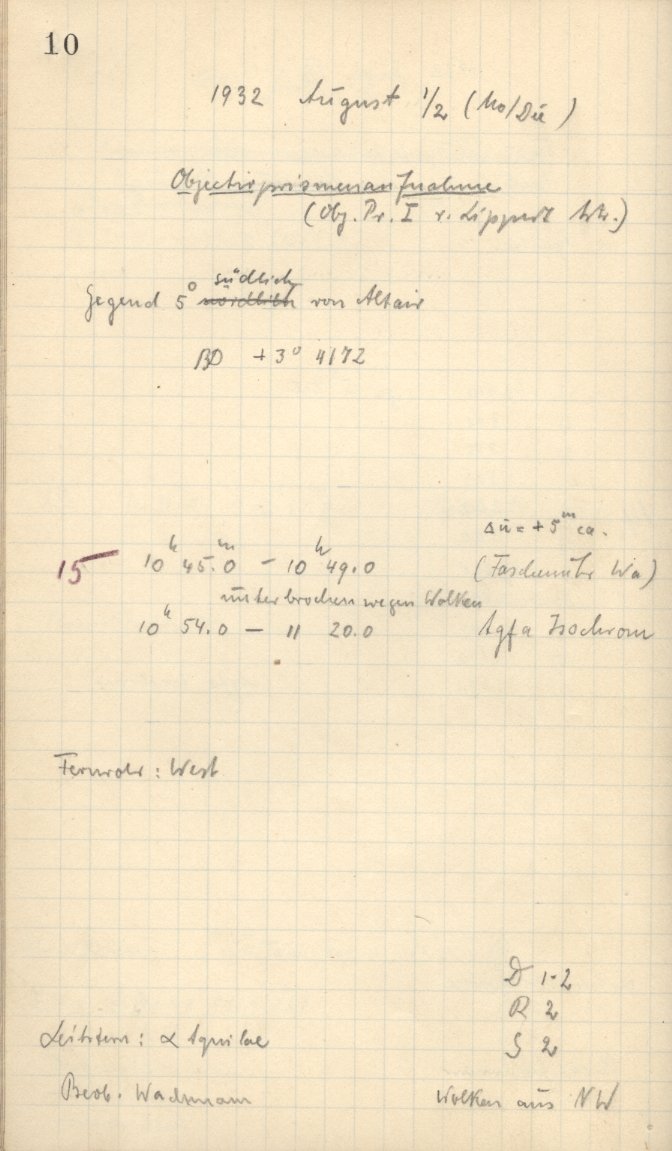 10
1932 August 1/2 (Mo/Die)
Objectivprismenaufnahme
(Obj. Pr. I v. Lippert Astr.)
südlich
Gegend 5° nördlich von Altair
BD +3° 4172
Δu = +5m ca.
15 10h 45.m0 – 10h 49.0 (Taschenuhr Wa)
unterbrochen wegen Wolken
10h 54.0 – 11 20.0 Agfa Isochrom
Fernrohr: West
D 1-2
R 2
S 2
Leitstern: α Aquilae
Beob. Wachmann Wolken aus NW